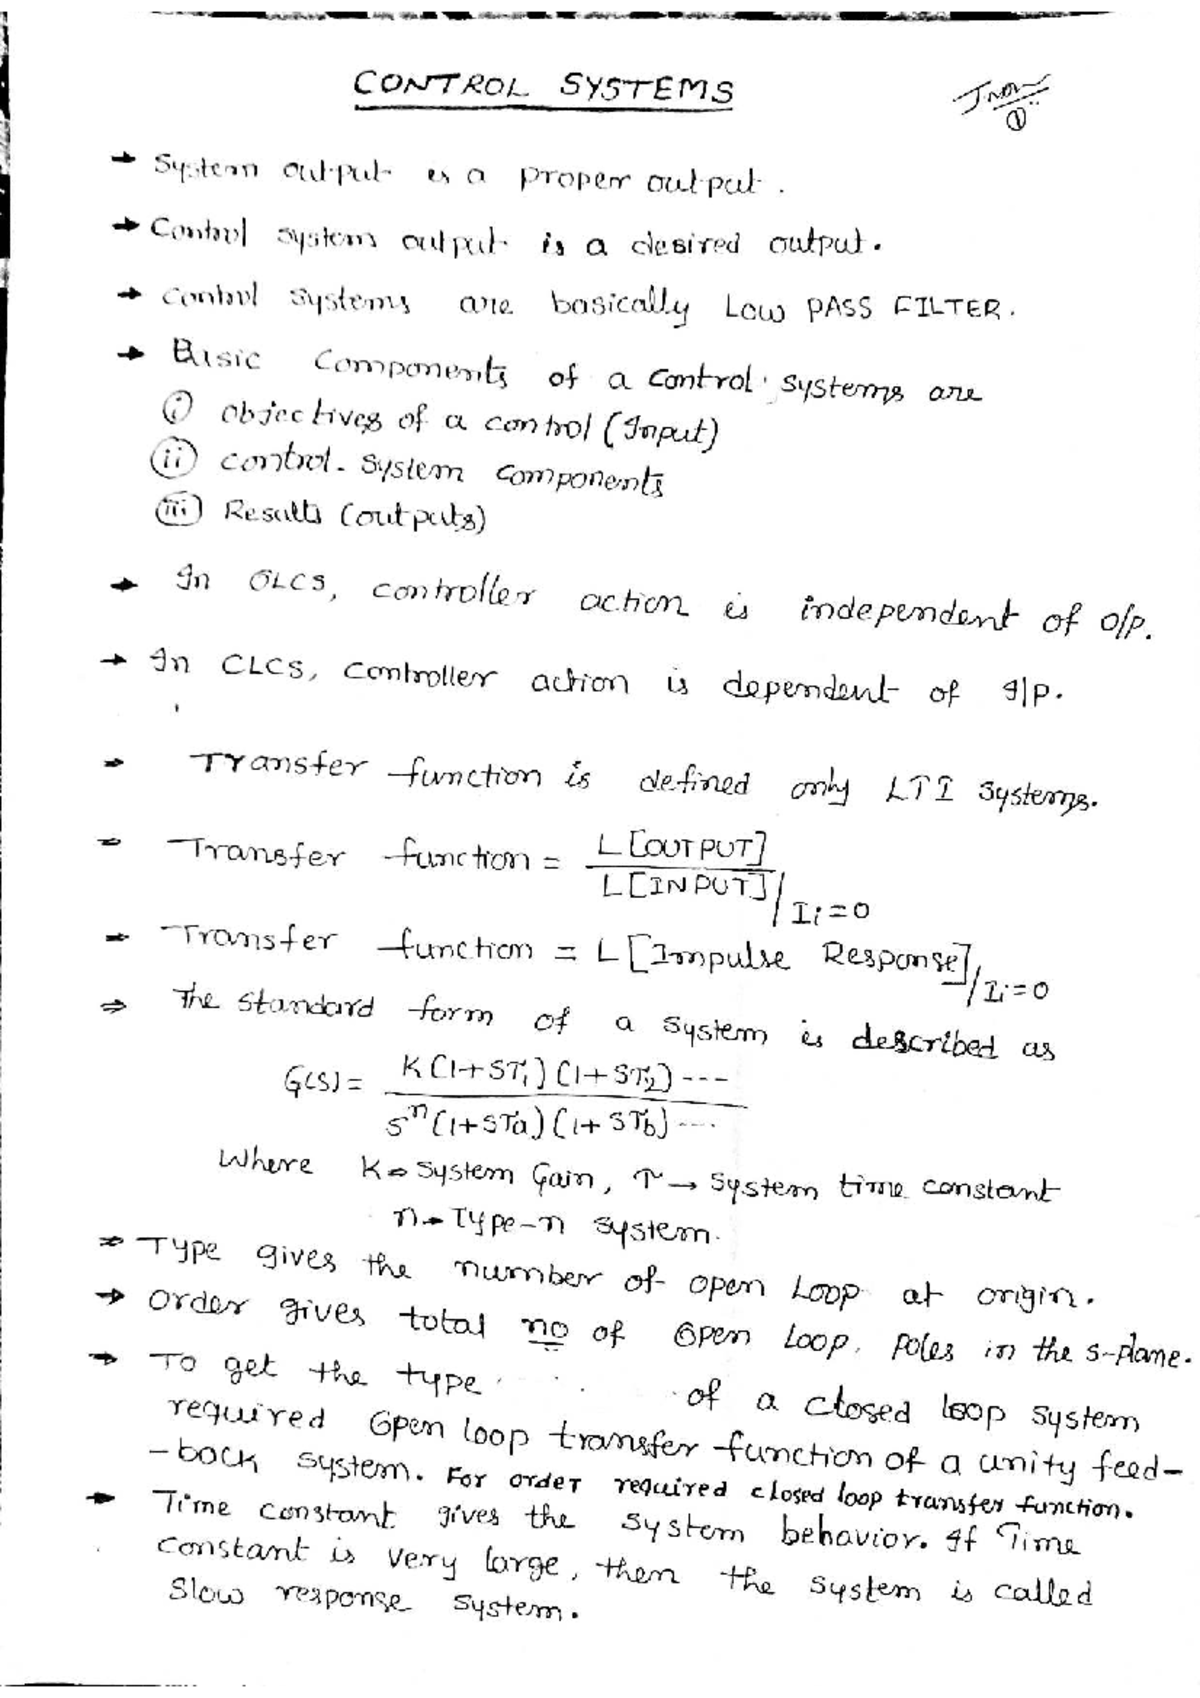 CONTROL SYSTEMS
①
→ System output is a proper output.
→ Control system output is a desired output.
→ Control systems are basically LOW PASS FILTER.
→ Basic components of a control systems are
(i) objectives of a control (Input)
(ii) control-system components
(iii) Results (outputs)
→ In OLCS, controller action is independent of o/p.
→ In CLCS, controller action is dependent of I/P.
⇒ Transfer function is defined only LTI systems.
⇒ Transfer function = L[OUTPUT] / L[INPUT] / Ii=0
⇒ Transfer function = L[Impulse Response] / Ii=0
⇒ The standard form of a system is described as
G(s) = K(1+ST1)(1+ST2)---- / S^n(1+STa)(1+STb)----
Where K⇒System Gain, T→System time constant
n→Type-n system.
⇒ Type gives the number of open Loop at origin.
→ order gives total no of open Loop. Poles in the s-plane.
→ To get the type of a closed loop system
required open loop transfer function of a unity feed-
-back system. For order required closed loop transfer function.
→ Time constant gives the system behavior. If Time
constant is very large, then the system is called
slow response system.